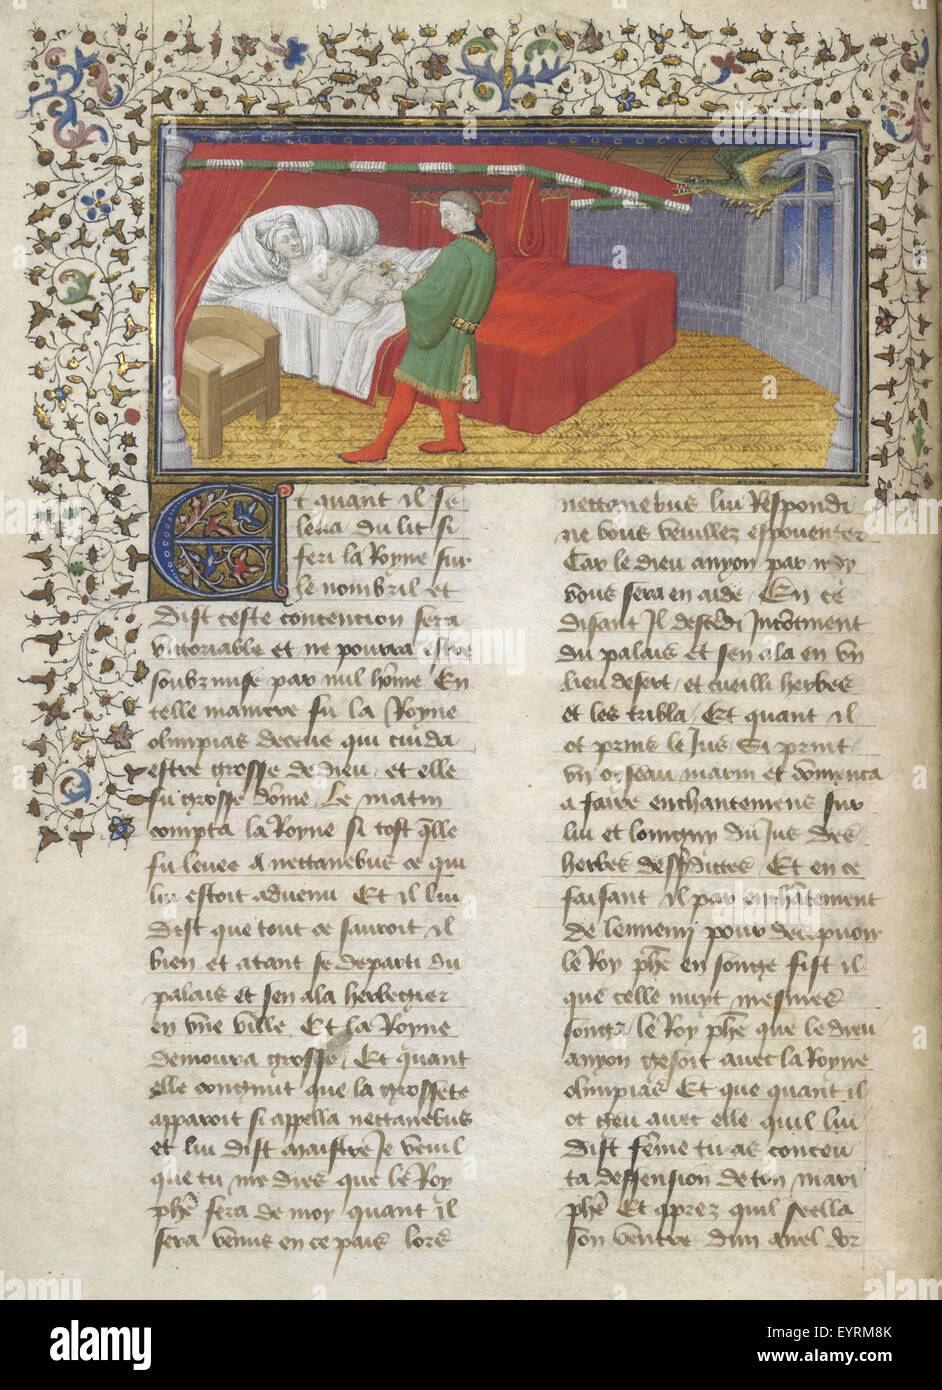 Et quant il se
leua du lit si
feri la Royne sur
le nombril et
Dist ceste concencion sera
victoriable et ne pourra estre
soubzmise par nul hõme En
telle maniere fu la Royne
olimpias deceue qui cuida
estre grosse de dieu et elle
fu grosse dõme Le matin
compta la Royne si tost q̃lle
fu leuee a nettanebus ce qui
lui estoit aduenu Et il lui
Dist que tout ce sauoit il
bien et atant se departi du
palais et sen ala herbegier
en vne ville Et la Royne
demoura grosse Et quant
elle congnut que la grossete
apparoit si appella nettanebus
et lui dist maistre Je veuil
que tu me dies que le Roy
phẽ fera de moy quant il
sera venus en ce pais lors
nettanebus lui Respondi
ne vous veuillez espouenter
Car le dieu amyon par moy
vous sera en aide En ce
disant Il descẽdi
du palais et sen ala en vn
lieu desert et cueilli herbes
et les tribla Et quant il
ot prins le Jus Si print
vn oyseau marin et cõmenca
a faire enchantemens sur
lui et loingny du Jus des
herbes dessusdictes Et en ce
faisant il par enchãtement
de lennemy pour decepuoir
le Roy phẽ en songe fist il
que celle nuyt mesmes
songa le Roy phẽ que le dieu
amyon gesoit auec la Royne
olimpias Et que quant il
ot geu auec elle quil lui
dist fẽme tu as conceu
ta deffension de ton mari
phẽ Et aprez quil seella
son ventre dun anel dor
alamy
alamy
Image ID: EYRM8K
www.alamy.com